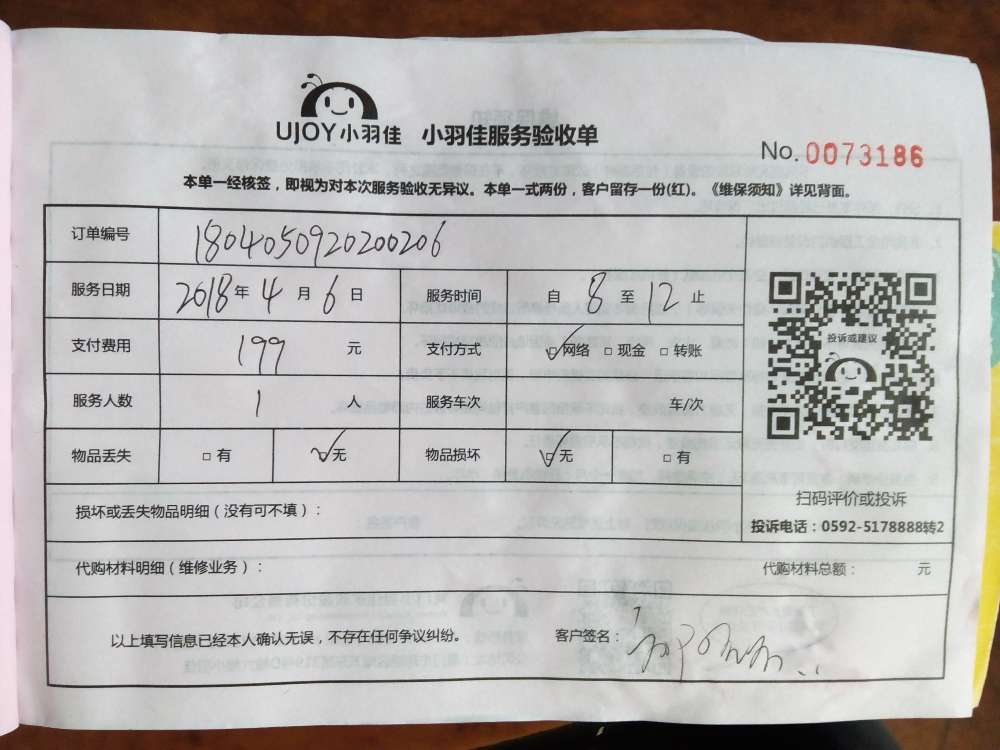 UJOY小羽佳 小羽佳服务验收单
No.0073186
本单一经核签，即视为对本次服务验收无异议。本单一式两份，客户留存一份(红)。《维保须知》详见背面。
订单编号 1804050920200206
服务日期 2018年4月6日 服务时间 自8至12止
支付费用 199元 支付方式 ☑网络 □现金 □转账
服务人数 1人 服务车次 车/次
物品丢失 □有 ☑无 物品损坏 ☑无 □有
投诉或建议
扫码评价或投诉
投诉电话：0592-5178888转2
损坏或丢失物品明细（没有可不填）：
代购材料明细（维修业务）： 代购材料总额： 元
以上填写信息已经本人确认无误，不存在任何争议纠纷。 客户签名：